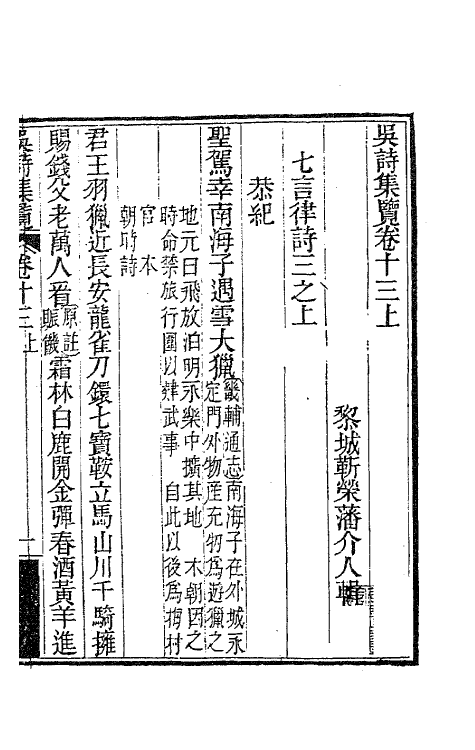 吳詩集覽卷十三上
黎城靳榮藩介人輯
七言律詩三之上
恭紀
聖駕幸南海子遇雪大獵
畿輔通志南海子在外城永
定門外物產充牣為遊獵之
地元曰飛放泊明永樂中擴其地 本朝因之
時命禁旅行圍以肄武事 自此以後為梅村
官本
朝時詩
君王羽獵近長安龍雀刀鐶七寶鞍立馬山川千騎擁
賜錢父老萬人看
原註
賑饑
霜林白鹿開金彈春酒黃羊進
吳詩集覽 卷十三上
一